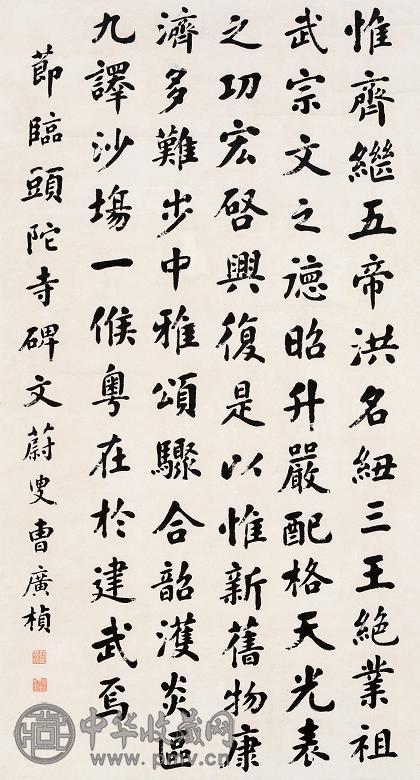 惟齊繼五帝洪名紐三王絕業祖
武宗文之德昭升嚴配格天光表
之功宏啓興復是以惟新舊物康
濟多難步中雅頌驟合韶濩炎區
九譯沙塲一候粵在於建武焉
節臨頭陀寺碑文蔚叟曹廣楨
中华收藏网